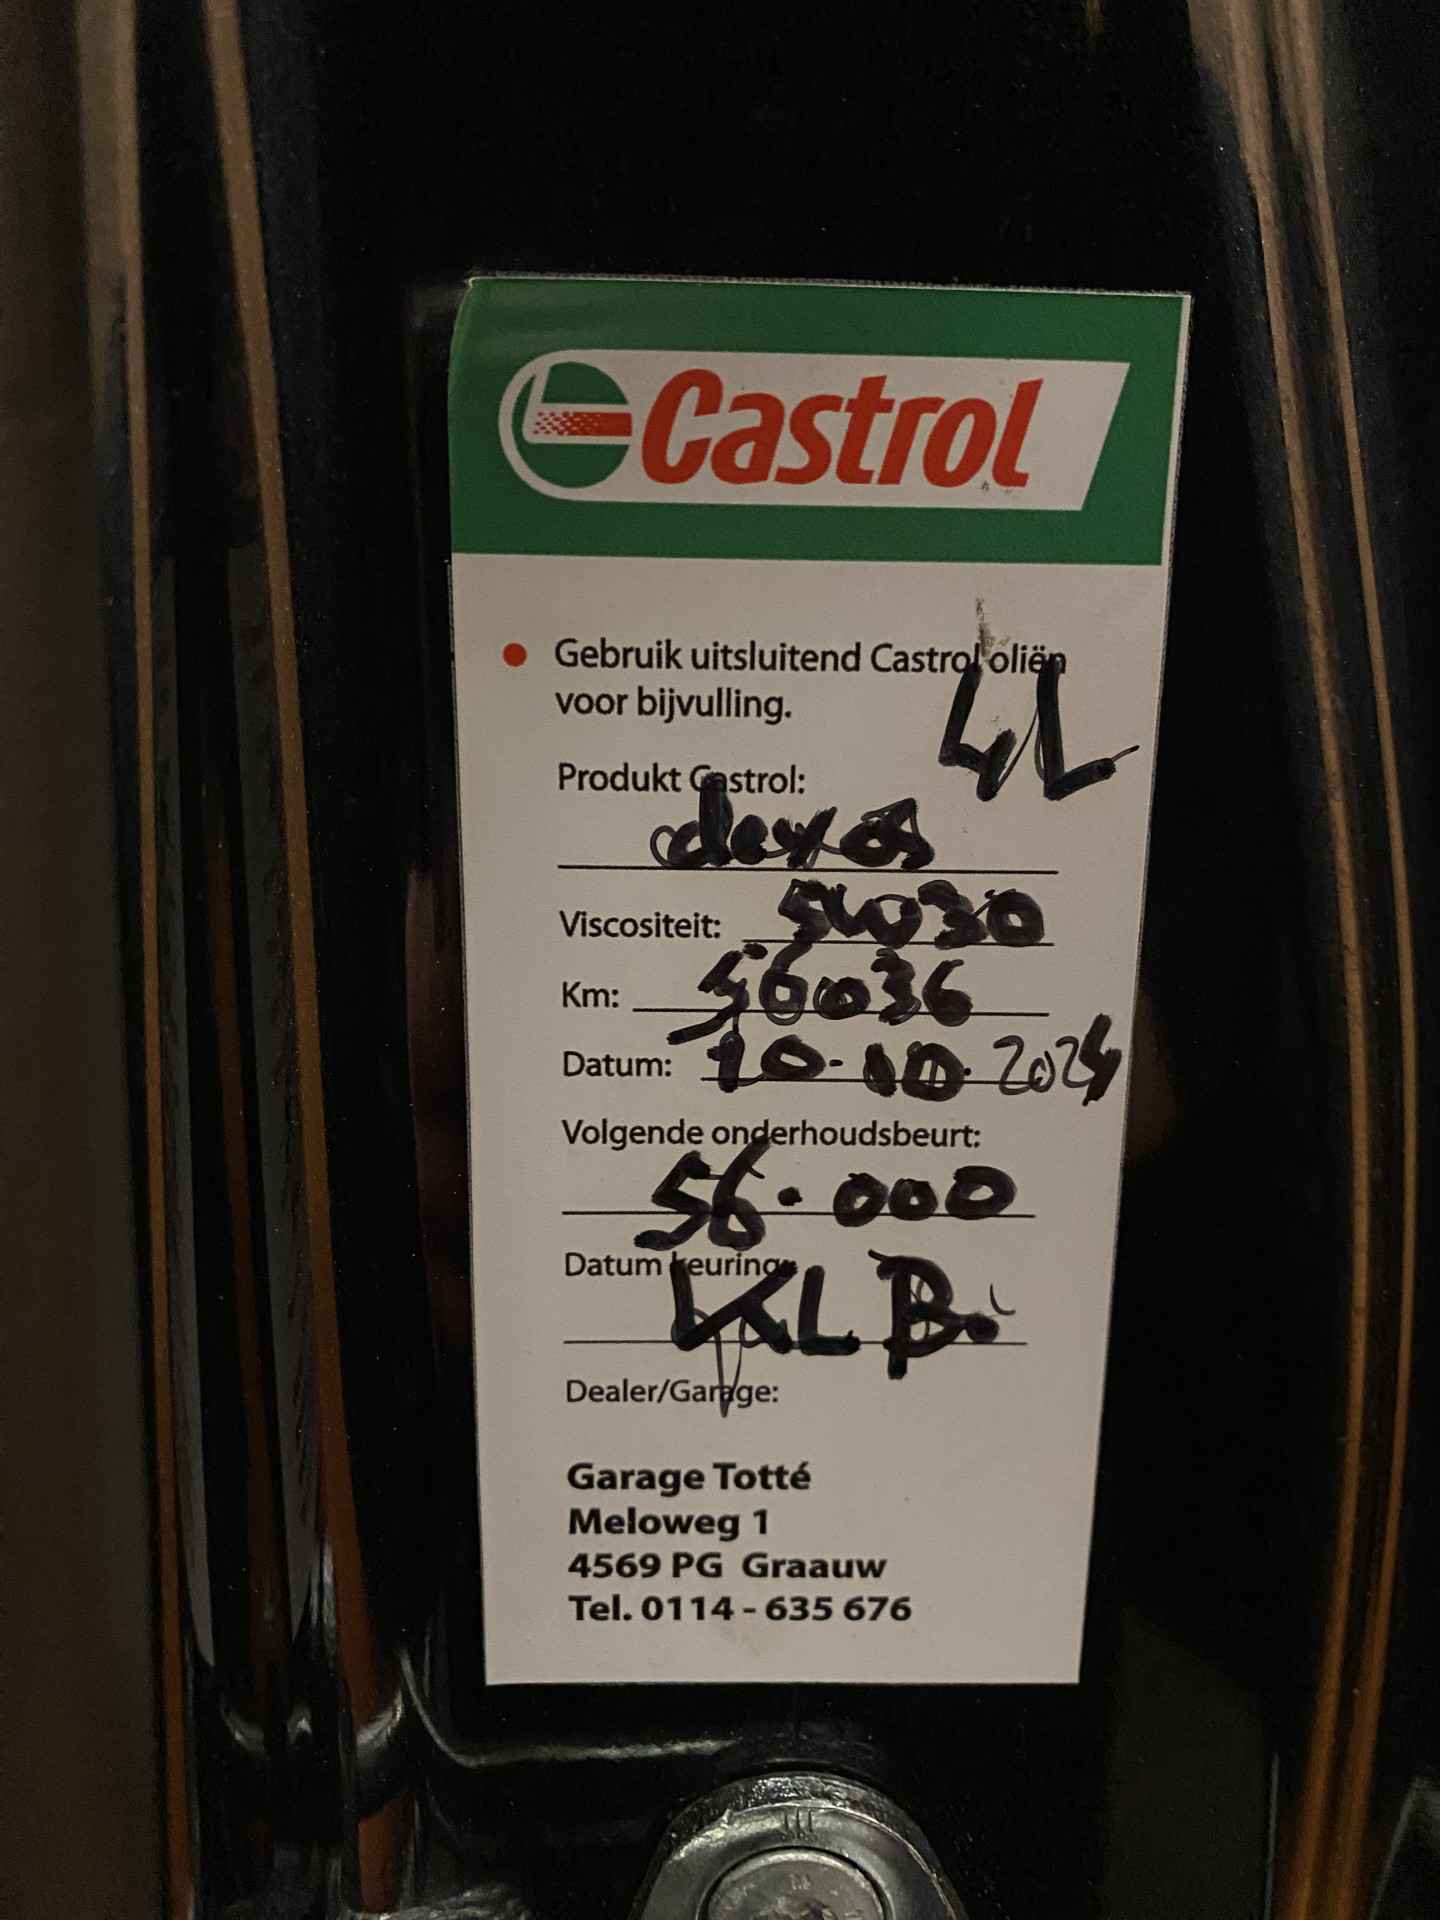 Castrol
Gebruik uitsluitend Castrol oliën
voor bijvulling.
4L
Produkt Castrol:
dexos
Viscositeit: 5W030
Km: 56036
Datum: 10-10-2024
Volgende onderhoudsbeurt:
56.000
Datum keuring:
KLB.
Dealer/Garage:
Garage Totté
Meloweg 1
4569 PG Graauw
Tel. 0114 - 635 676